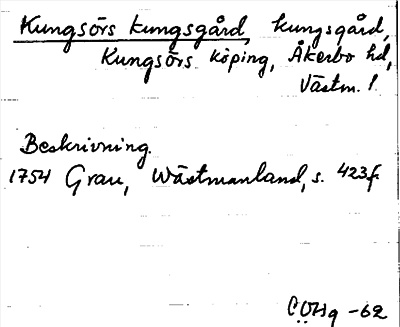 Kungsörs kungsgård, kungsgård,
Kungsörs köping, Åkerbo hd,
Västm. l.
Beskrivning.
1754 Grau, Wästmanland, s. 423f.
COHg -62